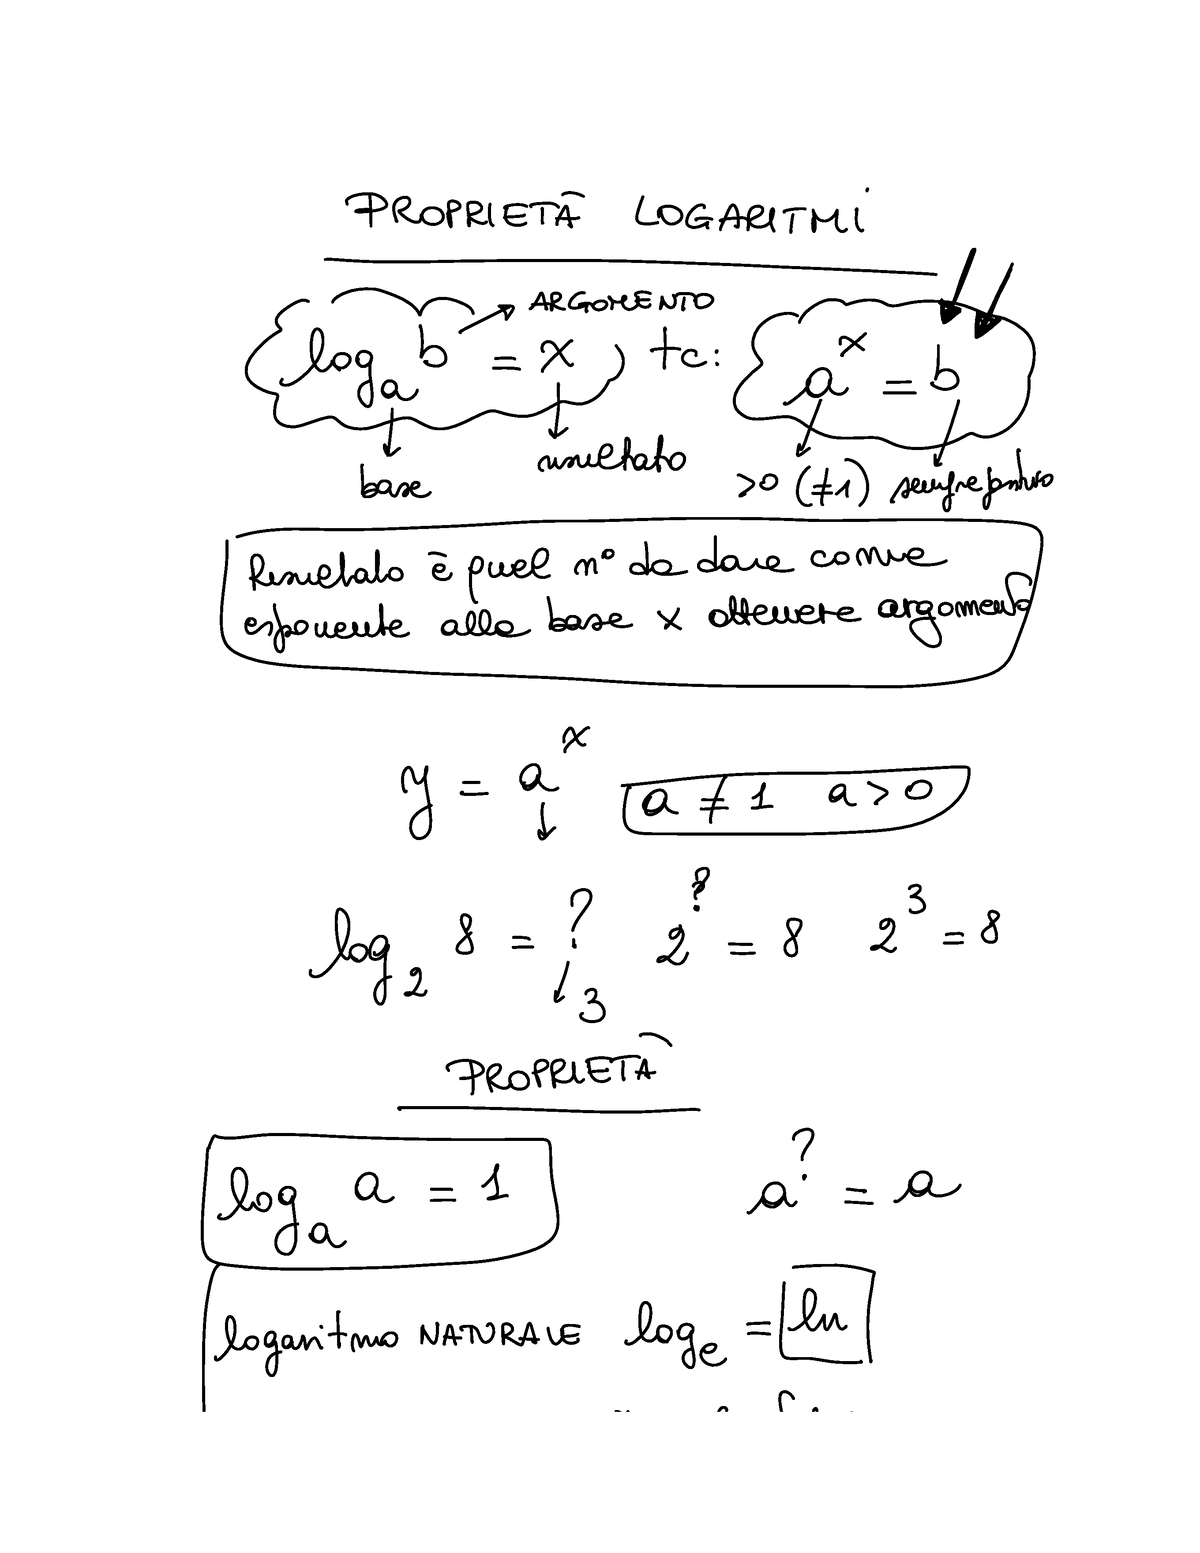 PROPRIETÀ LOGARITMI
log_a b = x , tc: a^x = b
ARGOMENTO
base
risultato
>0 (≠1) sempre positivo
Risultato è quel n° da dare come
esponente alla base x ottenere argomento
y = a^x a ≠ 1 a > 0
log_2 8 = ? 2^? = 8 2^3 = 8
3
PROPRIETÀ
log_a a = 1 a^? = a
logaritmo NATURALE log_e = ln